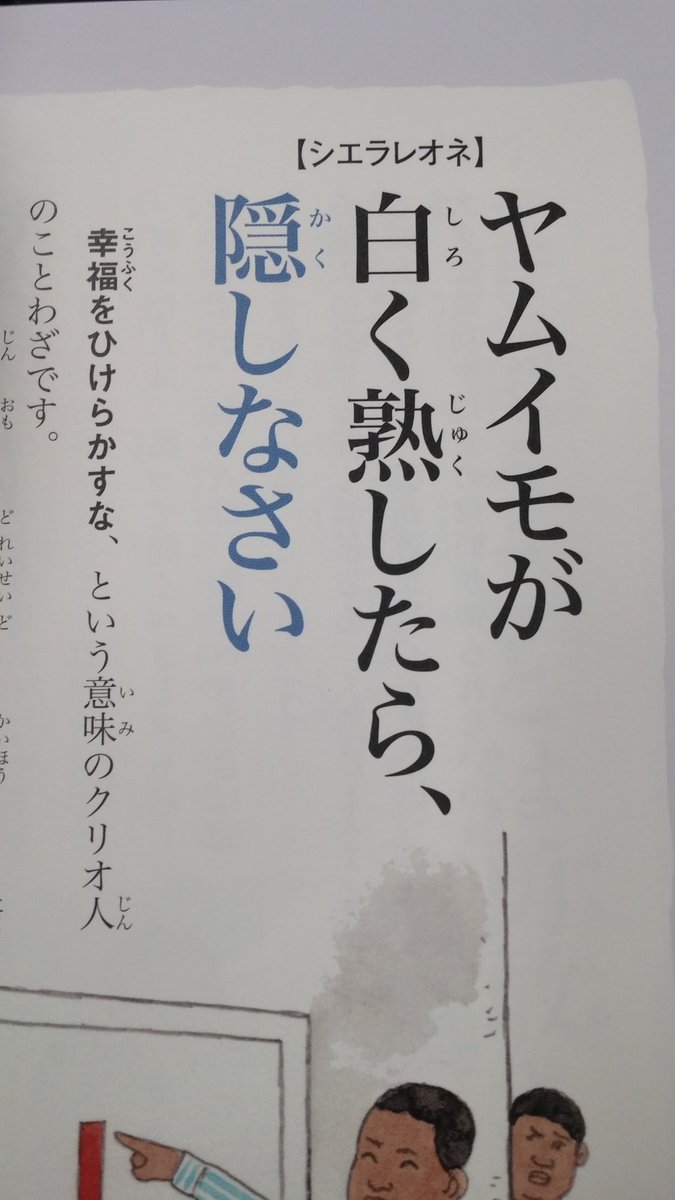 【シエラレオネ】
ヤムイモが
白く熟したら、
しろ
じゅく
隠しなさい
かく
幸福をひけらかすな、という意味のクリオ人
こうふく
いみ
じん
のことわざです。
じん
おも
どれいせいど
かいほう